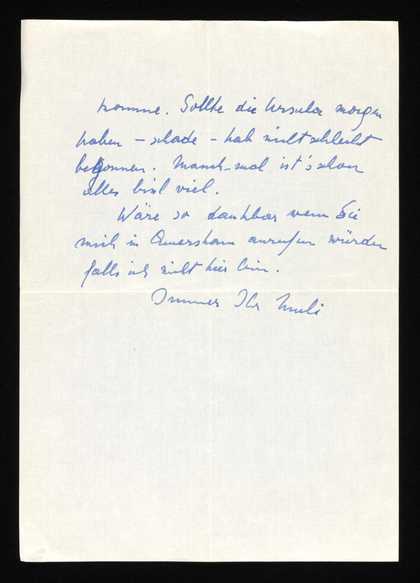 komme. Sollte die Ursula morgen
haben – schade – hab nicht schlecht
begonnen. Manch-mal ist's schon
alles bisl viel.
Wäre so dankbar wenn Sie
mich in Amersham anrufen würden
falls ich nicht hier bin.
Immer Ihr